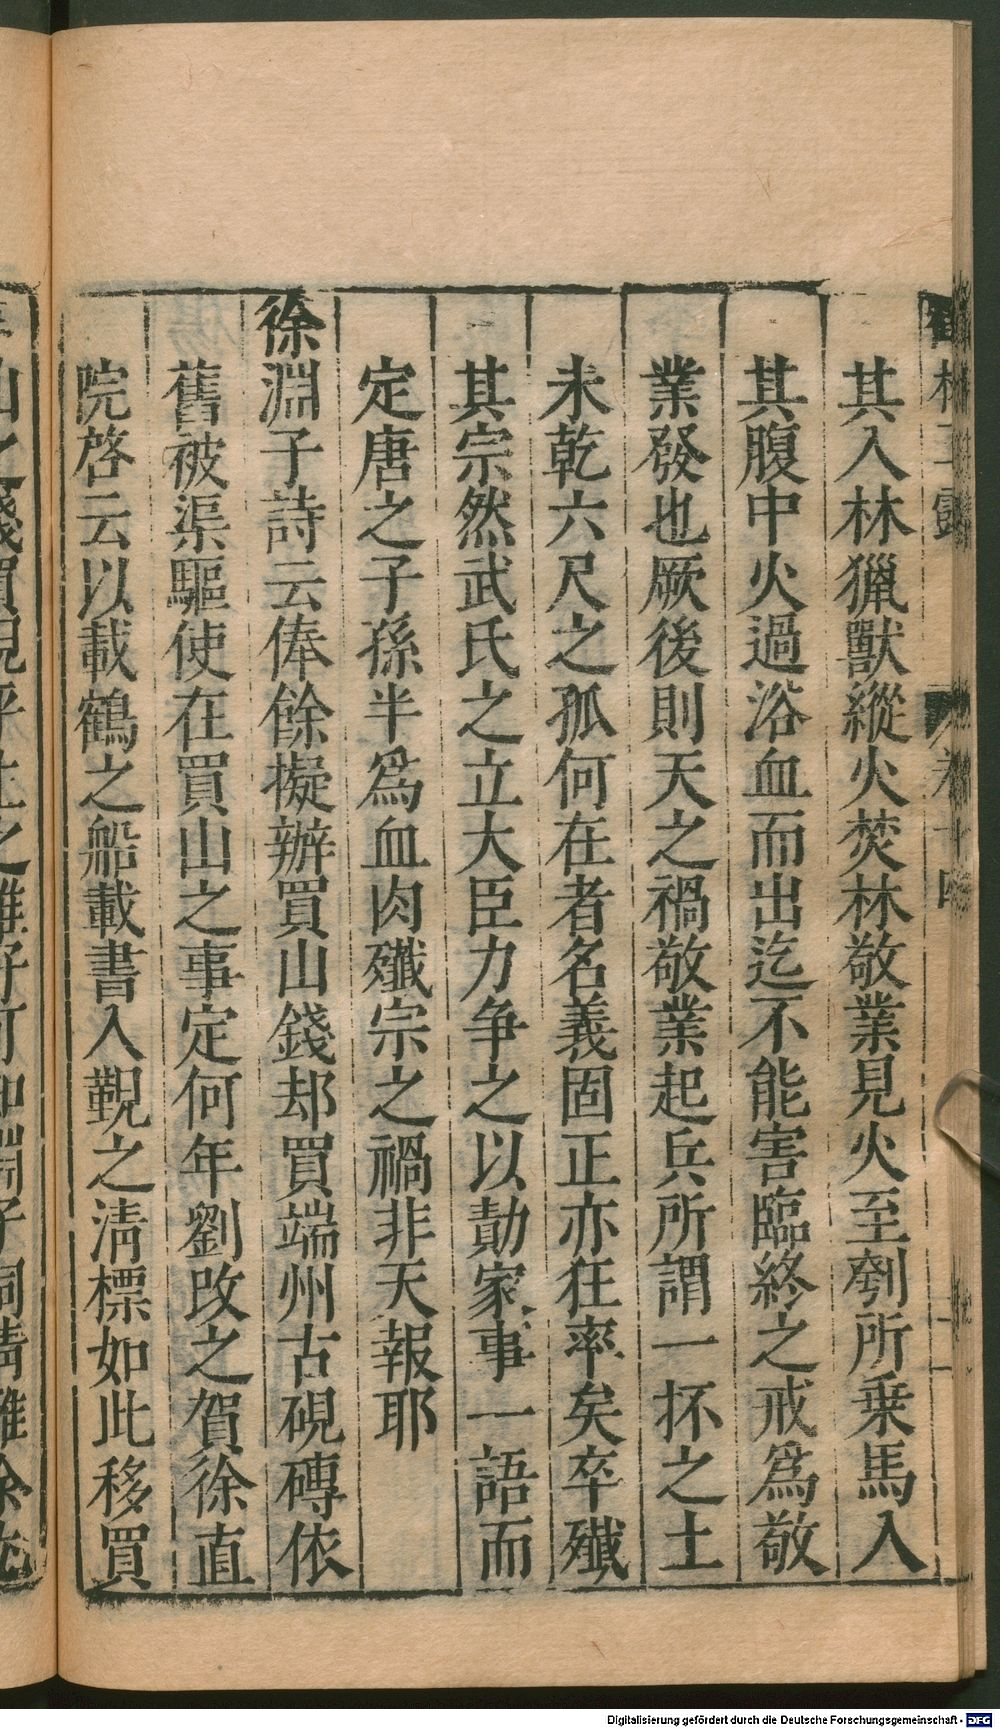 其入林獵獸縱火焚林敬業見火至刳所乗馬入
其腹中火過浴血而出迄不能害臨終之戒爲敬
業發也厥後則天之禍敬業起兵所謂一抔之土
未乾六尺之孤何在者名義固正亦狂率矣卒殲
其宗然武氏之立大臣力争之以勣家事一語而
定唐之子孫半爲血肉殲宗之禍非天報耶
徐淵子詩云俸餘擬辦買山錢却買端州古硯磚依
舊被渠驅使在買山之事定何年劉改之賀徐直
院啓云以載鶴之船載書入覲之淸標如此移買
山之錢買硯平生之雅好可知淵子詞清雅余尤
卷十四
Digitalisierung gefördert durch die Deutsche Forschungsgemeinschaft - DFG